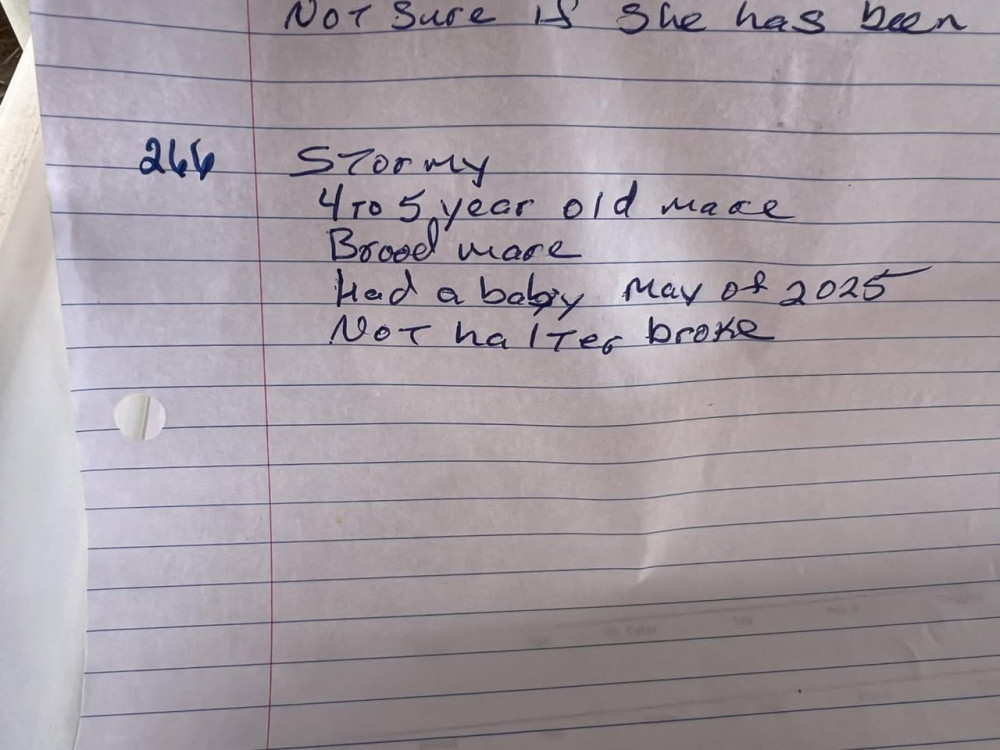 Not Sure if She has been
266 Stormy
4 to 5 year old mare
Brood mare
Had a baby May of 2025
Not halter broke